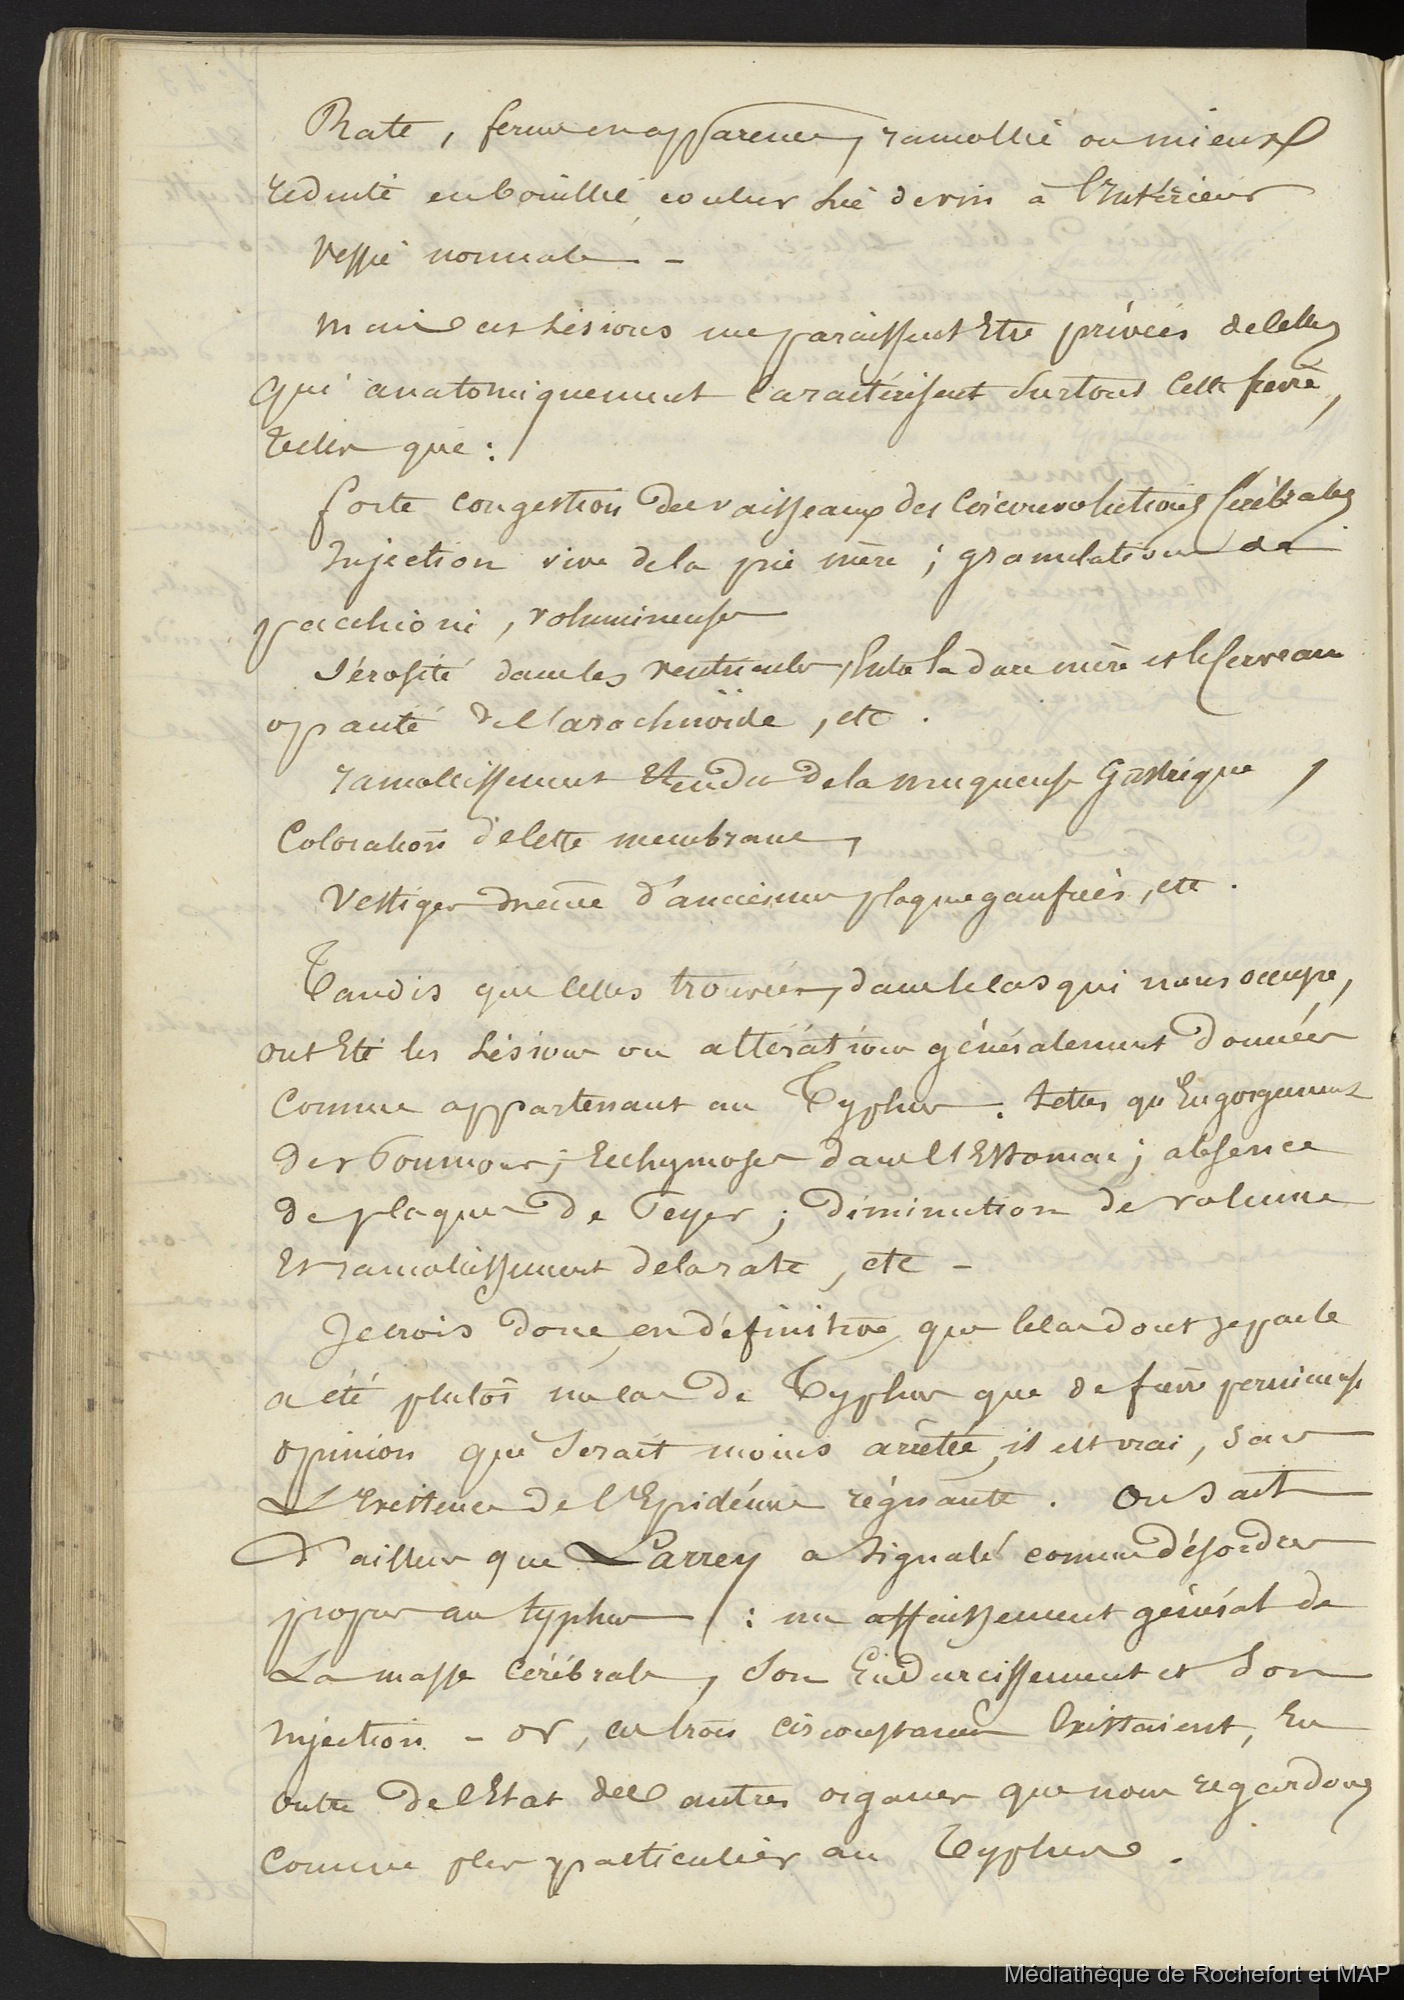 Rate, ferme en apparence, ramollie ou mieux
reduite en bouillie couleur lie de vin à l'Intérieur
Vessie normale -
Mais ces Lésions me paraissent Etre privées de celles
qui anatomiquement caractérisent surtout cette fievre,
telles que :
forte congestion des vaisseaux des Circonvolutions Cérébrales
Injection vive de la pie mère ; granulations de
pacchioni, volumineuses
Sérosité dans les ventricules, Entre la dure mère et le Cerveau
opacité de l'arachnoïde, etc.
ramollissement Etendu de la muqueuse Gastrique,
Coloration de cette membrane,
Vestiges même d'anciennes plaques gaufrées, etc.
Tandis que celles trouvées, dans le cas qui nous occupe,
ont Eté les Lésions ou altérations généralement données
comme appartenant au Typhus : telles qu'Engorgement
des Poumons ; Ecchymoses dans l'Estomac ; absence
de plaques de Peyer ; diminution de volume
Et ramollissement de la rate, etc -
Je crois donc, en définitive, que le cas dont je parle
a été plutôt un cas de Typhus que de fièvre pernicieuse
opinion qui serait moins arrêtée, il est vrai, sans
L'Existence de l'Epidémie régnante. On sait
d'ailleurs que Larrey a signalé comme désordres
propres au typhus : un affaissement général de
La masse Cérébrale, son Endurcissement et son
Injection - or, ces trois circonstances Existaient, En
outre de l'Etat des autres organes que nous regardons
comme plus particulier au Typhus.
Médiathèque de Rochefort et MAP